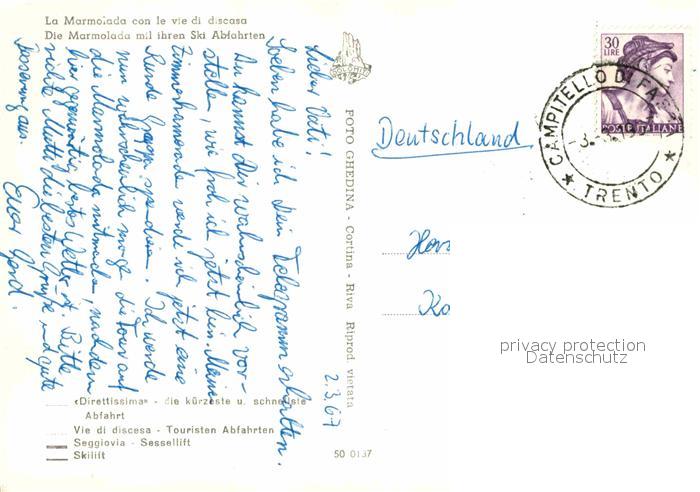 La Marmolada con le vie di discasa
Die Marmolada mil ihren Ski Abfahrten
Lieber Vati!
Soeben habe ich Dein Telegramm erhalten.
Du kannst Dir wahrscheinlich vor-
stellen, wie froh ich jetzt bin. Meine
Zimmerkameraden werde ich jetzt eine
Runde Grappa spendieren. Ich werde
nun wahrscheinlich morgen die Tour auf
die Marmolada mitmachen, nachdem
hier gegenwärtig bestes Wetter ist. Bitte
richte Mutti die besten Grüße und gute
Besserung aus.
Euer Gerd.
2.3.67
«Direttissima» - die kürzeste u. schnellste
Abfahrt
Vie di discesa - Touristen Abfahrten
Seggiovia - Sessellift
Skilift
FOTO GHEDINA - Cortina - Riva Riprod vietata
50 0137
30
LIRE
POSTE ITALIANE
CAMPITELLO DI FAS
TRENTO
Deutschland
Hor
Ko
privacy protection
Datenschutz